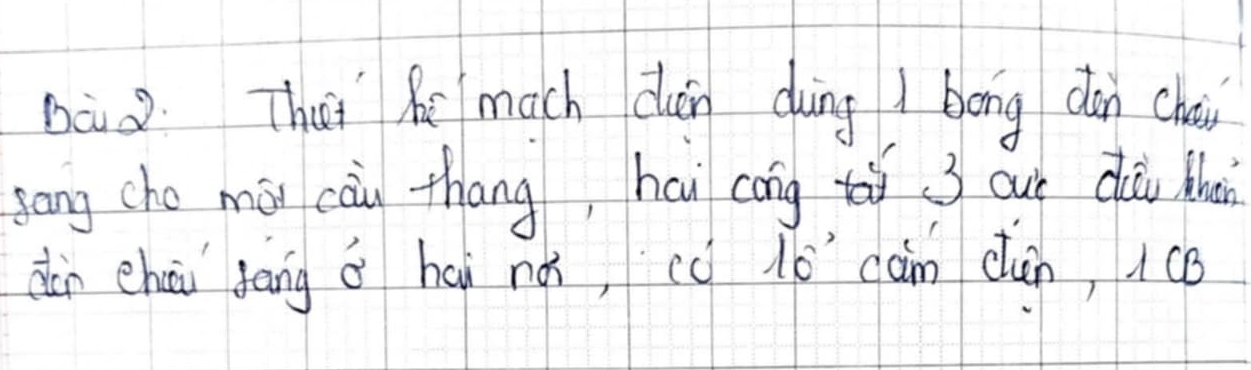 Bài 2: Thiết kế mạch điện dùng 1 bóng đèn chiếu
sáng cho một cầu thang, hai công tắt 3 cực điều khiển
đèn chiếu sáng ở hai nơi, có lổ cắm điện, 1 CB